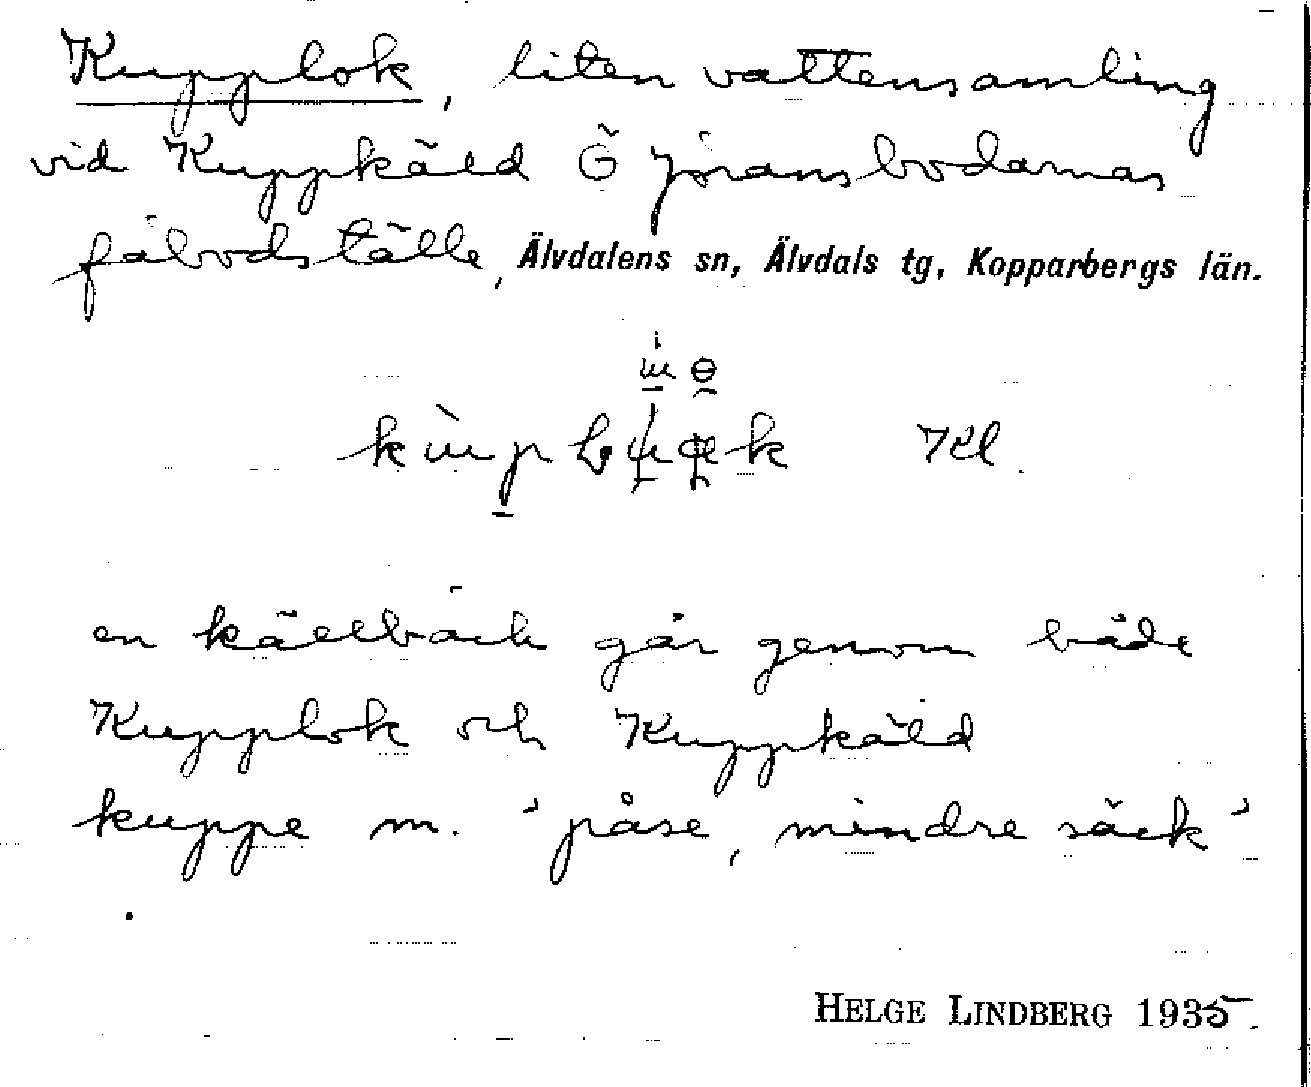 Kupplok, liten vattensamling
vid Kuppkäld Ö Jöransbodarnas
fäbodställe, Älvdalens sn, Älvdals tg, Kopparbergs län.
Kl.
en källbäck går genom både
Kupplok och Kuppkäld
kuppe m. 'påse, mindre säck'
HELGE LINDBERG 1935.